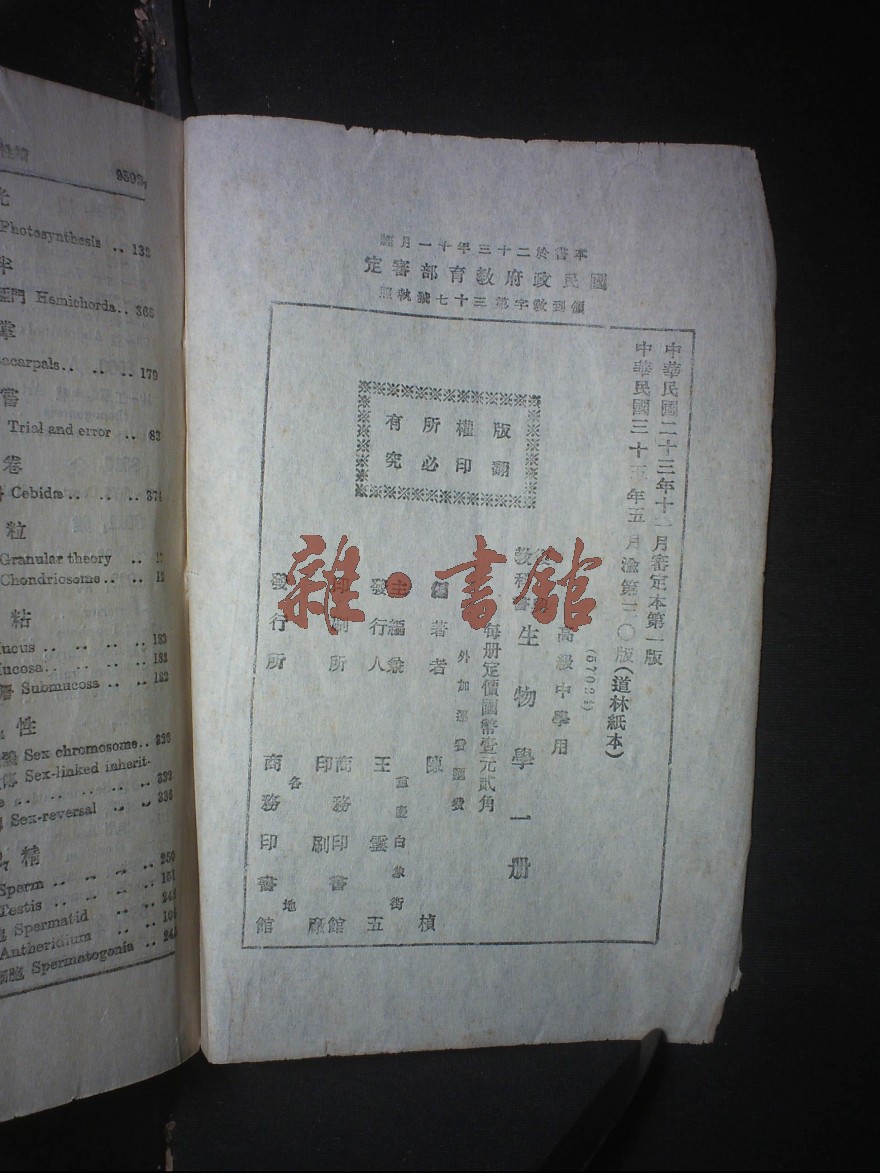 9592₇
Photosynthesis .. 132
Hemichorda.. 366
acarpals.. .. .. 179
Trial and error .. 83
卷
Cebidæ.. .. .. 374
粒
Granular theory ..
Chondriosome.. .. 12
粘
Mucus .. .. .. 183
Mucosa.. .. .. 182
Submucosa .. .. 122
性
Sex chromosome..
Sex-linked inherit-
Sex-reversal .. .. 336
精
Sperm .. .. .. 250
Testis .. .. .. 151
Spermatid .. ..
Antheridium ..
細胞 Spermatogonia ..
本書於二十三年十一月經
國民政府教育部審定
領到教字第三十七號執照
中華民國二十三年十一月審定本第一版
中華民國三十五年五月渝第二〇版(道林紙本)
高級中學用
教科書 生物學一册
每册定價國幣壹元貳角
外加運費匯費
版權所有
翻印必究
編著者 陳楨
主編兼
發行人 王雲五
重慶白象街
印刷所 商務印書館
印刷廠
發行所 各地
商務印書館
雜·書館